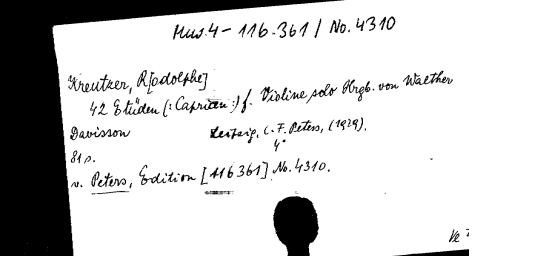 Mus.4-116.361 / No. 4310
Kreutzer, R[odolphe]
42 Etüden (:Capricen:) f. Violine solo Hrgb. von Walther
Davisson Leipzig, C. F. Peters, (1929).
4°
81 s.
v. Peters, Edition [116361] No. 4310.